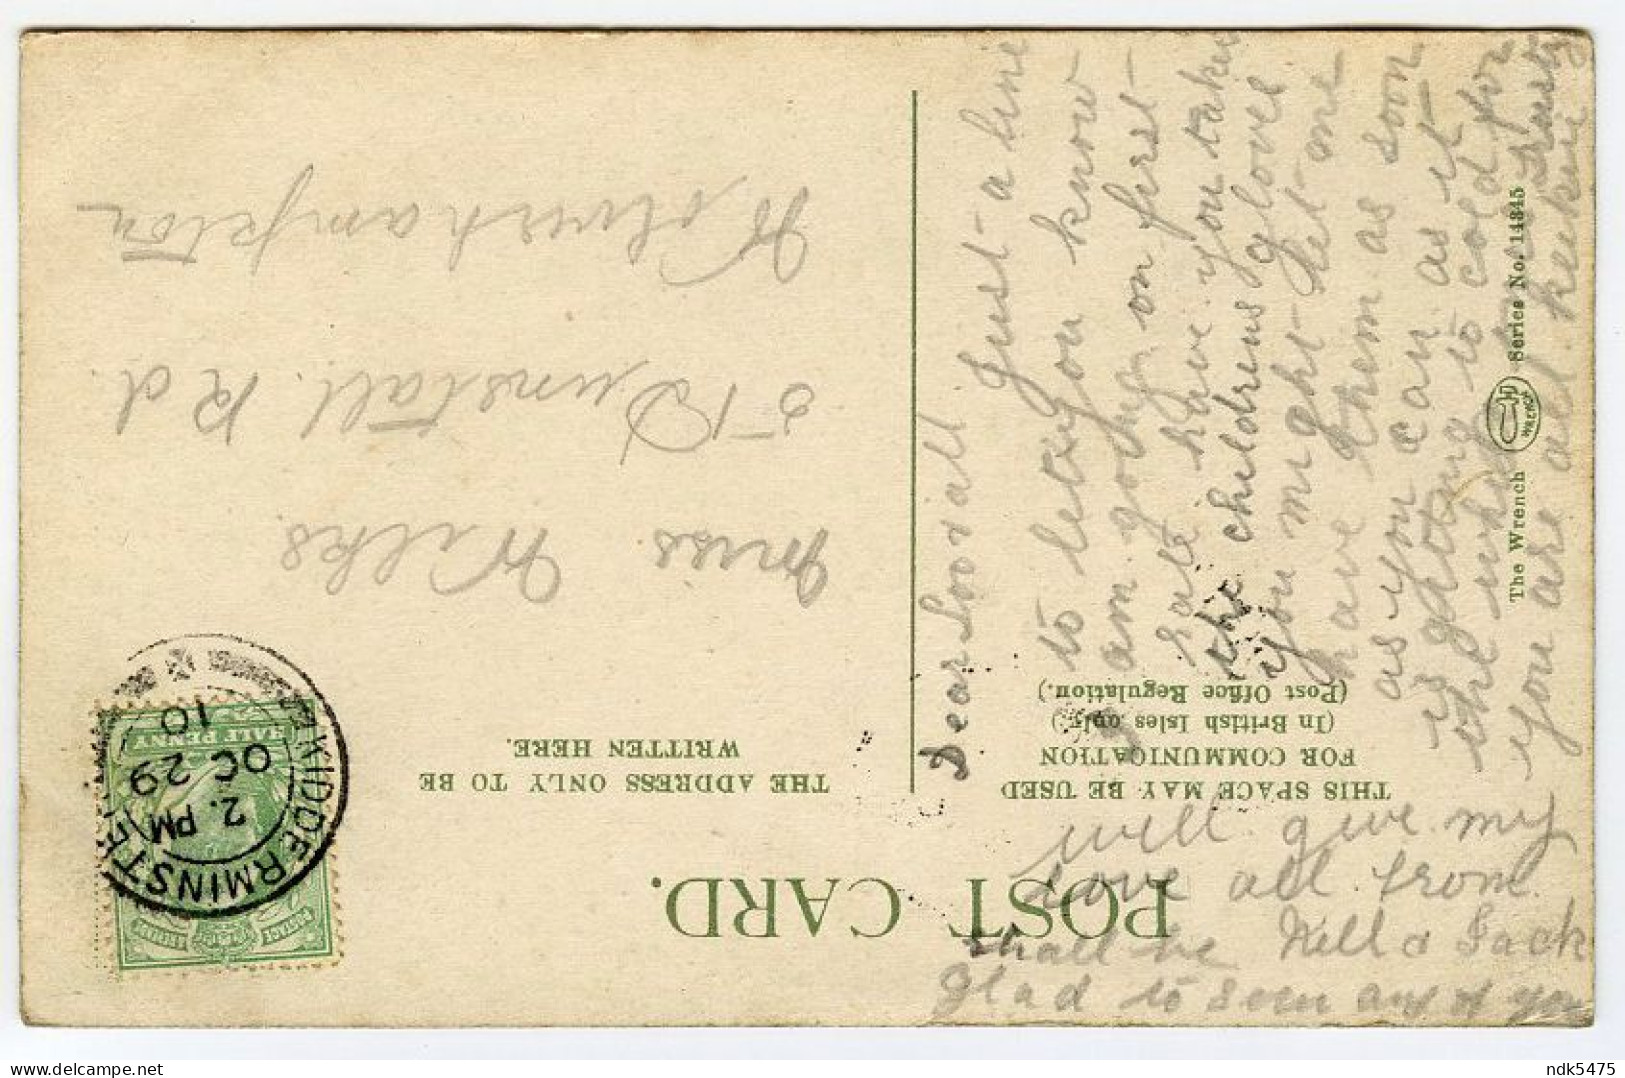 POST CARD.
THIS SPACE MAY BE USED
FOR COMMUNICATION
(In British Isles only.)
(Post Office Regulation.)
THE ADDRESS ONLY TO BE
WRITTEN HERE.
HALF PENNY
POSTAGE
REVENUE
KIDDERMINSTER
2. PM
OC 29
10
Miss Wilks
51 Dunstall Rd
Wolverhampton
Dear
Just a line
to let you know
I am going on first
rate have you taken
the childrens gloves
if you might let me
have them as soon
as you can as it
is getting to cold for
the
you are all keeking
will give my
love all from
Nell & Jack
shall be
Glad to seen any of you
The Wrench
WRENCH
Series No. 14345
ndk5475